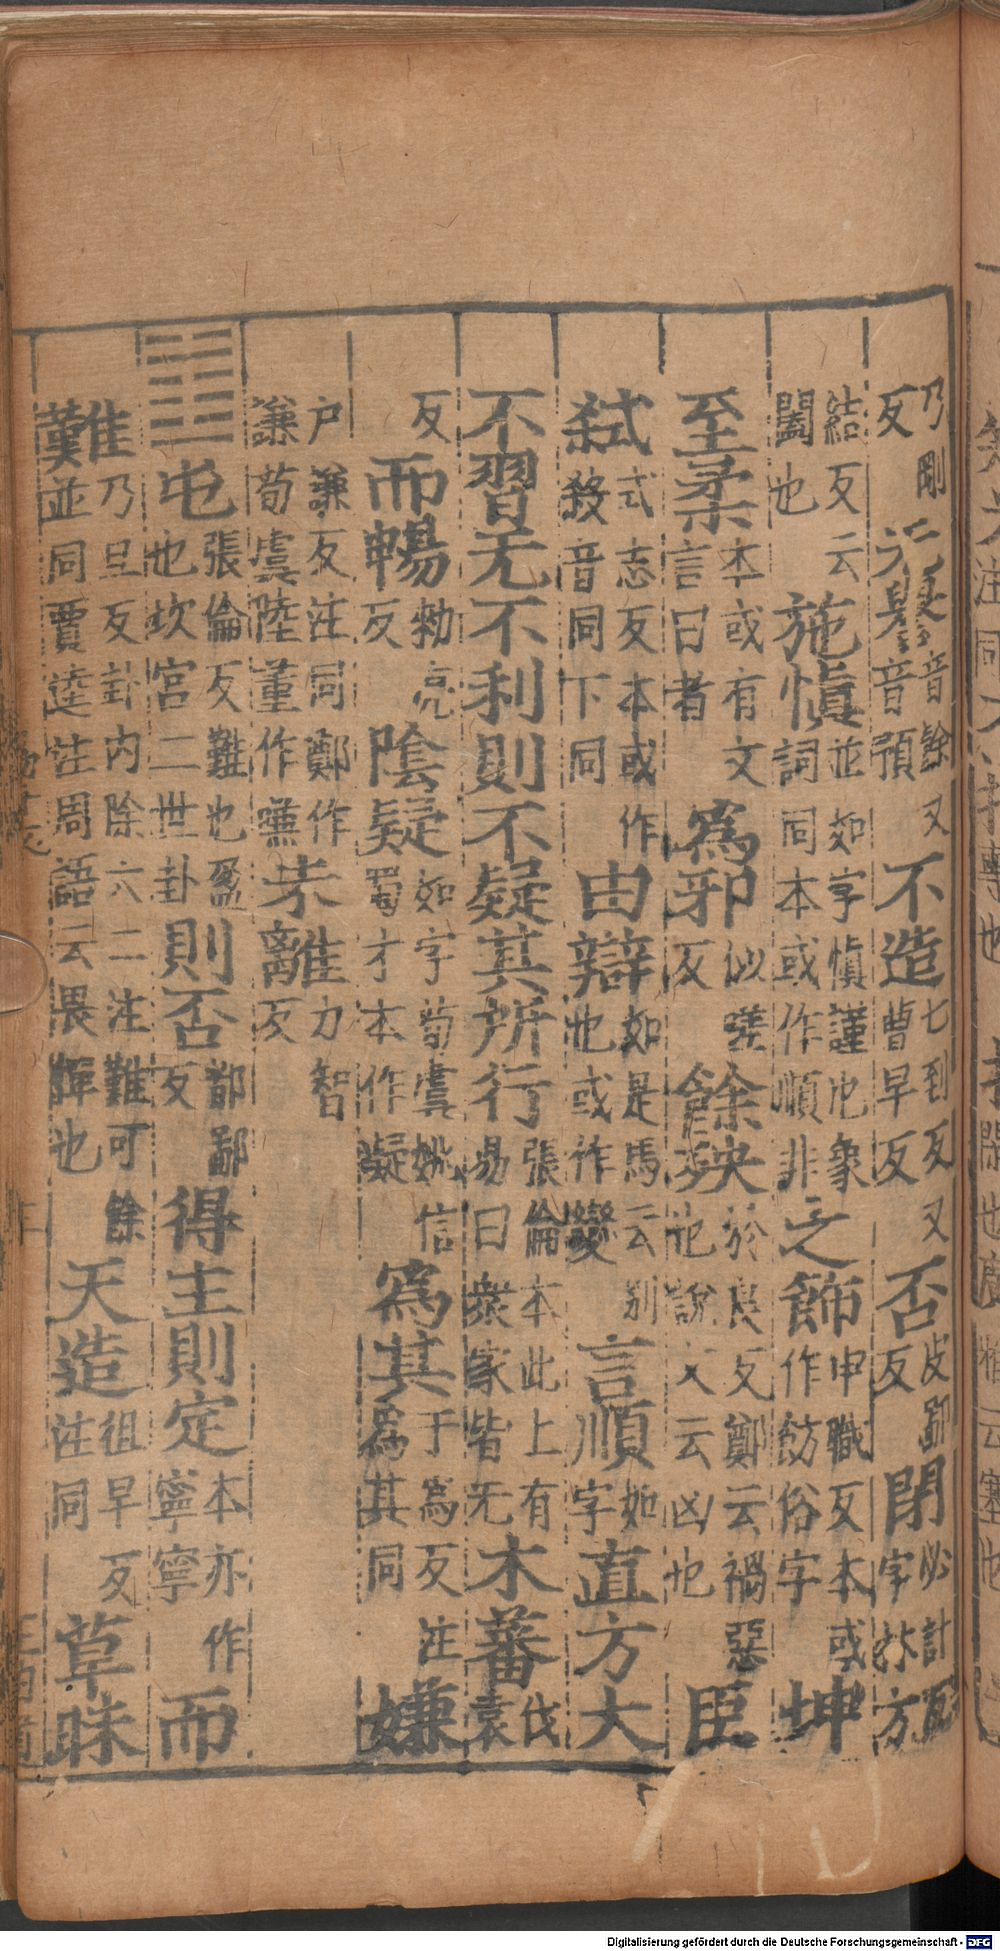 乃剛反无譽音餘又音預不造七到反又曹早反否皮鄙反閉必計反字林方
結反云闔也施慎並如字慎謹也象詞同本或作順非之飾申職反本或作餝俗字坤
至柔本或有文言曰者為邪似嗟反餘殃於良反鄭云禍惡也說文云凶也臣
弒式志反本或作殺音同下同由辯如是馬云别也或作變言順如字直方大
不習无不利則不疑其所行張倫本此上有易曰衆家皆无木蕃伐袁
反而暢勑亮反陰疑如字荀虞姚信蜀才本作凝為其于為反注為其同嫌
户謙反注同鄭作謙荀虞陸董作嗛未離力智反
屯張倫反難也盈也坎宮二世卦則否鄁鄙反得主則定本亦作寧寧而
難乃旦反卦内除六二注難可餘並同賈逵注周語云畏憚也天造徂早反注同草昧
Digitalisierung gefördert durch die Deutsche Forschungsgemeinschaft - DFG